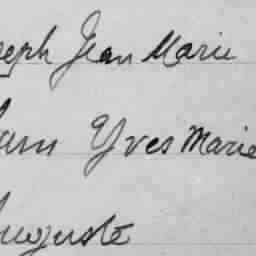 Joseph Jean Marie
Yves Marie
Auguste